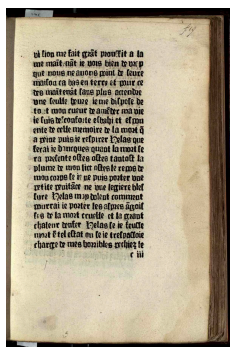 si lion me fait grāt prouffit a la
me maīt. nāt ie vois bien de vray
que nous ne auons point de seure
maison ca bas en terre et pour ce
des maītenāt sans plus attendre
une seulle heure ie me dispose de
tout mon cueur de amēder ma vie
ie suis descōforte esbahi et espou
ente de celle memoire de la mort q̄
a peine puis ie respirer Helas que
ferai ie dōcques quant la mort se
ra presente ostes ostes tantost la
plume de mon lict ostes le repos de
mon corps se ie ne puis porter une
petite penitāce ne une legiere bles
sure Helas moy dolent comment
pourrai ie porter les aspres āgois
ses de la mort cruelle et la grant
chaleur denfer Helas se ie feusse
mort en tel estat ou se ie trespassoie
charge de mes horribles pechiez le
c iii